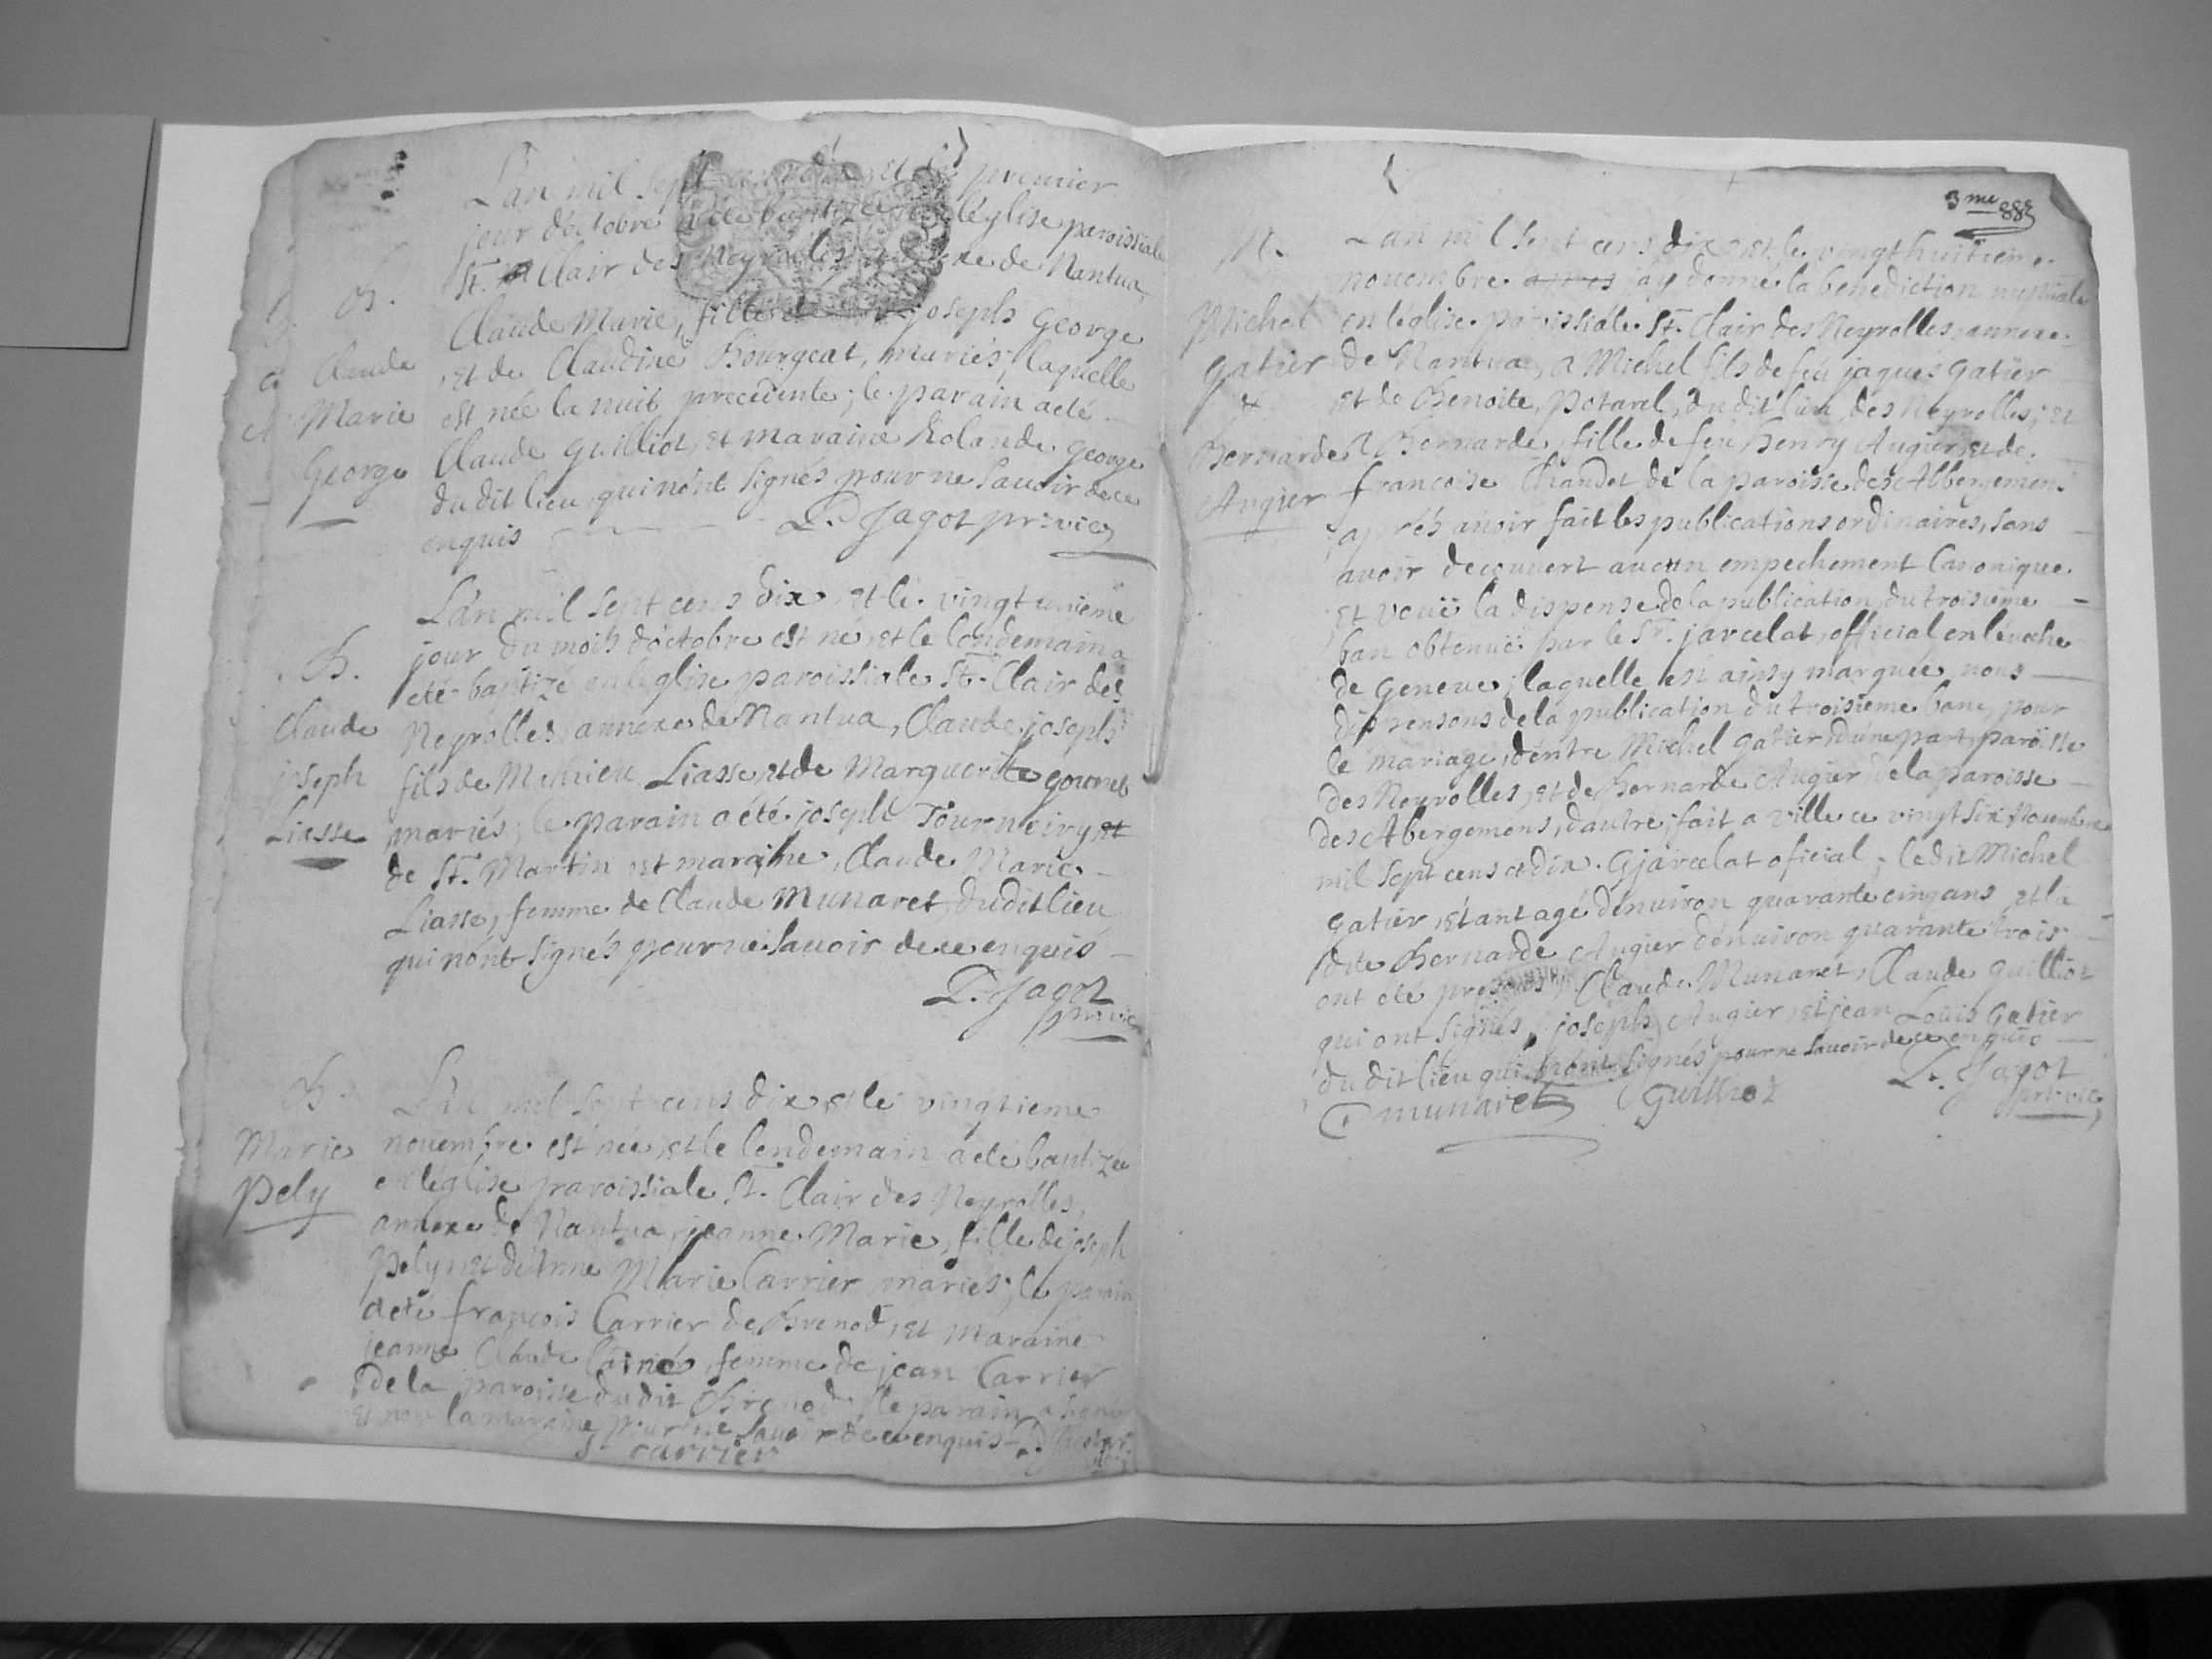 L'an mil sept cens dix, et le premier
jour d'octobre a été baptizée en l'église paroissiale
St. Clair des Neyrolles annexe de Nantua,
Claude Marie, fille de joseph George
et de Claudine Bourgeat, mariés, laquelle
est née la nuit precedente; le parain a eté
Claude Guilliot, et maraine Rolande George
du dit lieu qui n'ont signés pour ne sauoir de ce
enquis
P. Jagot pr. vic
B.
Claude
Marie
George
L'an mil sept cens dix, et le vingt unieme
jour du mois d'octobre est né, et le lendemain a
eté baptizé en l'eglise paroissiale St. Clair des
Neyrolles annexe de Nantua, Claude joseph
fils de Mathieu Liasse, et de Marguerite gournet
mariés; le parain a été joseph Tourneiry et
de St. Martin et maraine, Claude Marie
Liasse, femme de Claude Munaret, du dit lieu
qui n'ont signés pour ne sauoir de ce enquis
P. Jagot
pr. vic
B.
Claude
joseph
Liasse
L'an mil sept cens dix, et le vingtieme
nouembre est née, et le lendemain a eté baptizée
en l'église paroissiale St. Clair des Neyrolles,
annexe de Nantua, jeanne Marie, fille de joseph
Pely, et d'Anne Marie Carrier mariés; le parain
a eté françois Carrier de Brenod, et maraine
jeanne Claude femme de jean Carrier
de la paroisse du dit Brenod; le parain a signé
et non la maraine pour ne sauoir de ce enquis P. Jagot pr.
carrier
B.
Marie
Pely
3me
L'an mil sept cens dix, et le vingt huitieme
nouembre apres j'ay donné la benediction nuptiale
en l'église paroissiale St. Clair des Neyrolles annexe
de Nantua, a Michel fils de feu jaques Gatier
et de Benoite Potarel, du dit lieu des Neyrolles; et
a Bernarde, fille de feu henry Augier, et de
françoise Chandet de la paroisse des Abbergemens
apres auoir fait les publications ordinaires, sans
auoir decouuert aucun empechement Canonique
et veuë la dispense de la publication du troisieme
ban obtenuë par le Sr. jarcelat, official en l'éueche
de Geneue; laquelle est ainsy marquée, nous
dispensons de la publication du troisieme banc, pour
le mariage, d'entre Michel Gatier, d'une part, paroisse
des Neyrolles, et de Bernarde Augier de la paroisse
des Abergemens, d'autre; fait a ville ce vingt six Nouembre
mil sept cens et dix. G jarcelat oficial; le dit Michel
Gatier, étant agé d'enuiron quarante cinq ans, et la
dite Bernarde Augier d'enuiron quarante trois
ont eté presens, Claude Munaret, Claude Guilliot
qui ont signés, joseph Augier, et jean Loüis Gatier
du dit lieu qui n'ont signés pour ne sauoir de ce enquis
C munaret C Guilliot P. Jagot
pr. vic
M.
Michel
Gatier
&
Bernarde
Augier